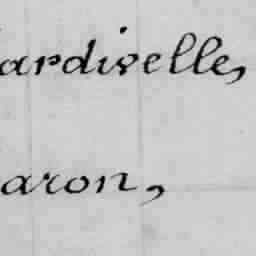 ardivelle,
aron,